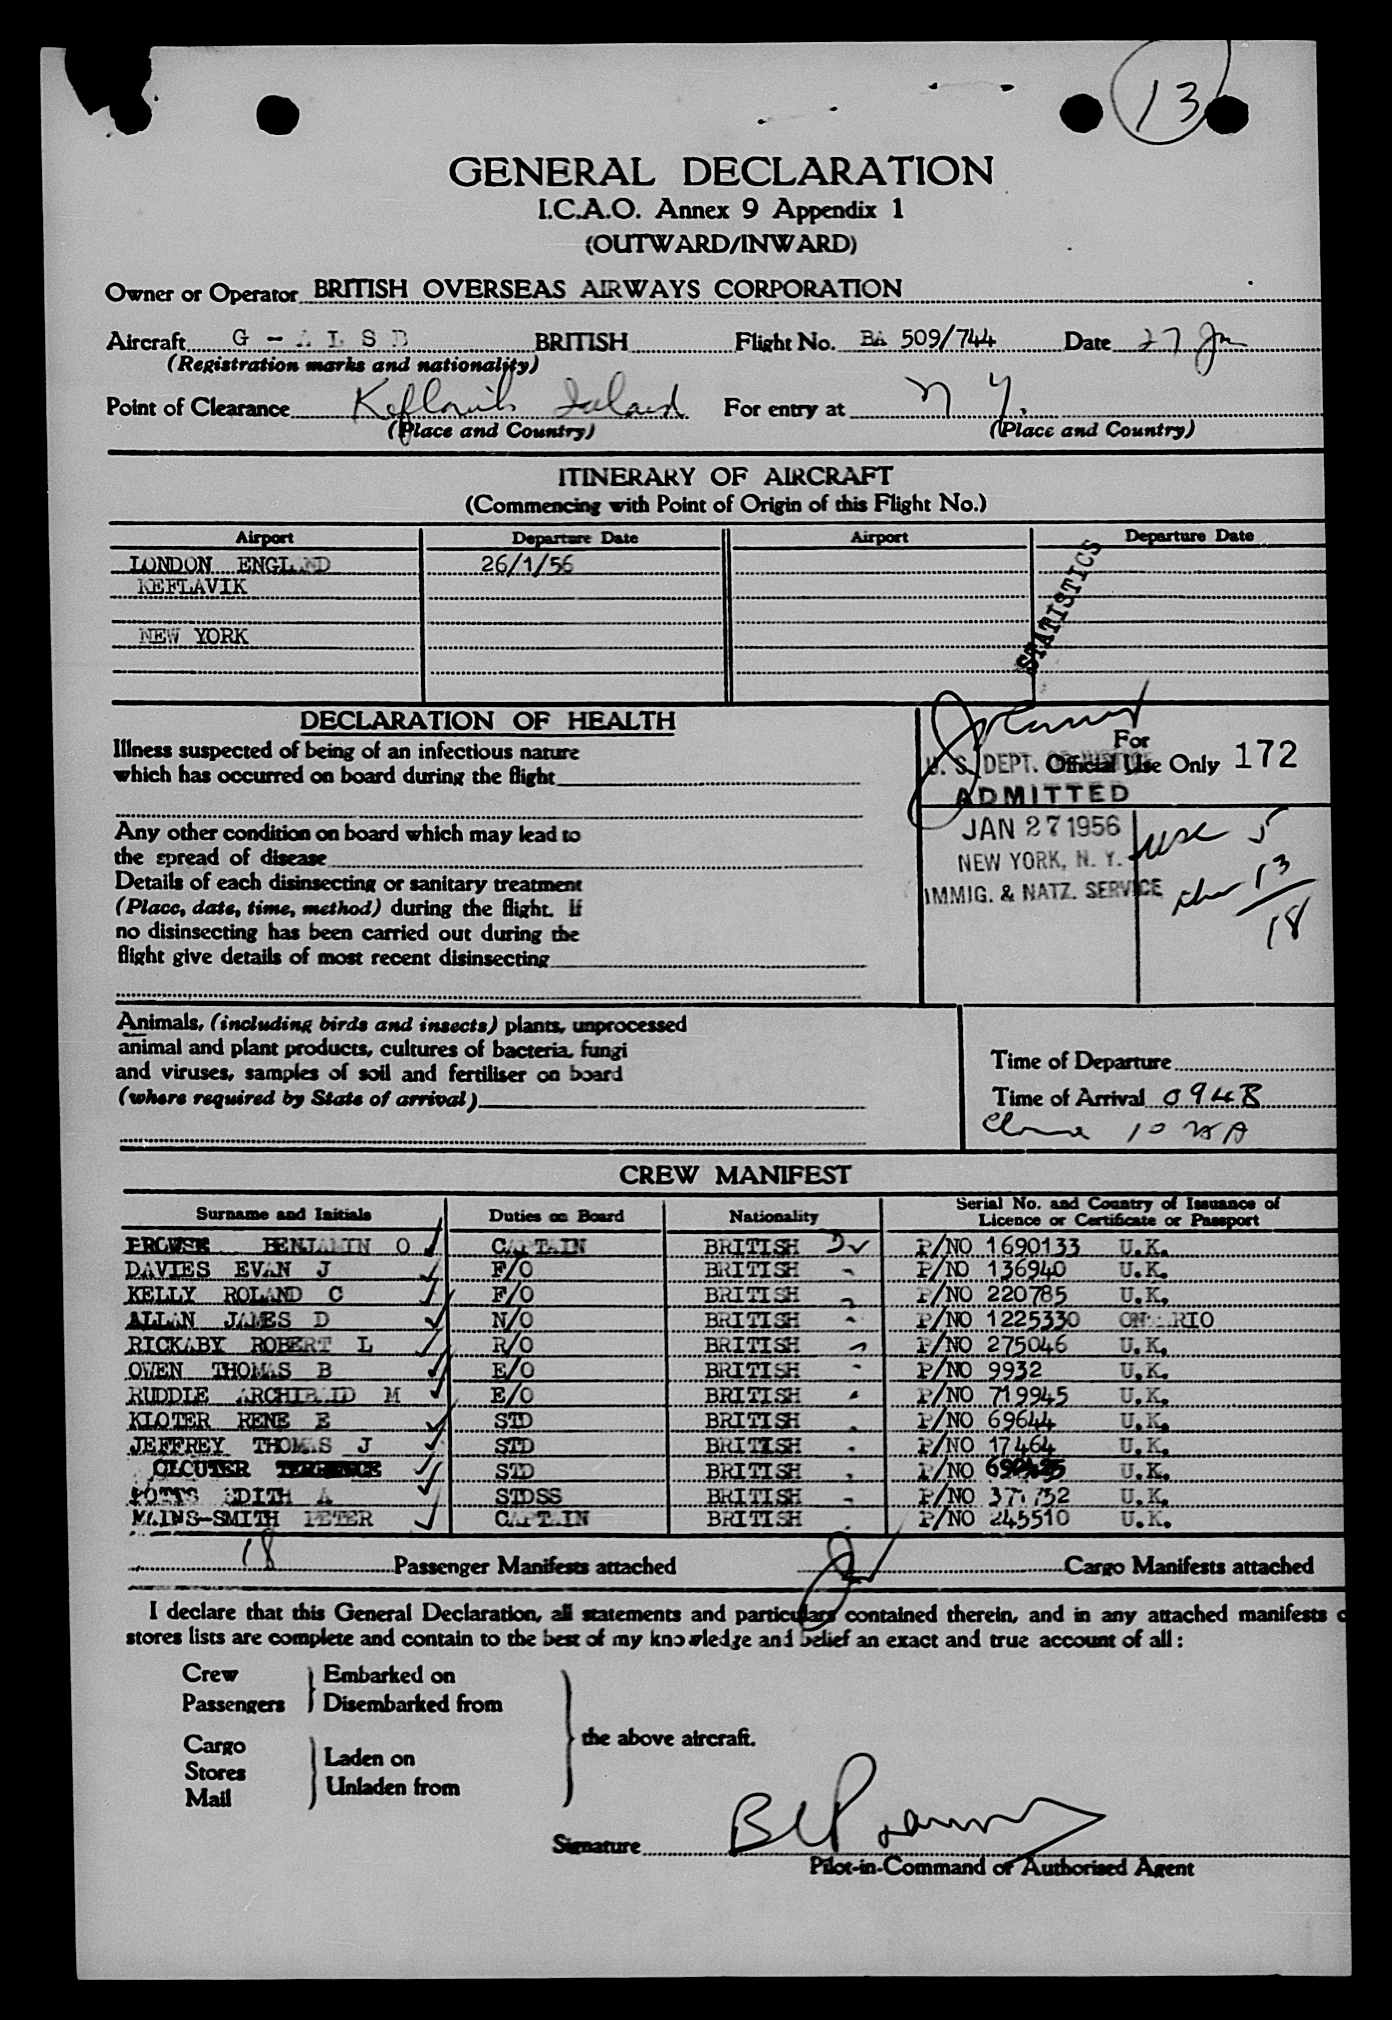 13
GENERAL DECLARATION
I.C.A.O. Annex 9 Appendix 1
(OUTWARD/INWARD)
Owner or Operator BRITISH OVERSEAS AIRWAYS CORPORATION
Aircraft G - A L S B BRITISH Flight No. BA 509/744 Date 27 Jan
(Registration marks and nationality)
Point of Clearance Keflavik Iceland For entry at N Y.
(Place and Country) (Place and Country)
ITINERARY OF AIRCRAFT
(Commencing with Point of Origin of this Flight No.)
Airport Departure Date Airport Departure Date
LONDON ENGLAND 26/1/56
KEFLAVIK
NEW YORK
STATISTICS
DECLARATION OF HEALTH
Illness suspected of being of an infectious nature
which has occurred on board during the flight
Any other condition on board which may lead to
the spread of disease
Details of each disinsecting or sanitary treatment
(Place, date, time, method) during the flight. If
no disinsecting has been carried out during the
flight give details of most recent disinsecting
For
Official Use Only 172
U. S. DEPT. OF JUSTICE
ADMITTED
JAN 27 1956
NEW YORK, N. Y.
IMMIG. & NATZ. SERVICE
usc 5
13
18
Animals, (including birds and insects) plants, unprocessed
animal and plant products, cultures of bacteria, fungi
and viruses, samples of soil and fertiliser on board
(where required by State of arrival)
Time of Departure
Time of Arrival 0948
10
CREW MANIFEST
Surname and Initials Duties on Board Nationality Serial No. and Country of Issuance of
Licence or Certificate or Passport
PROWSE BENJAMIN O CAPTAIN BRITISH P/NO 1690133 U.K.
DAVIES EVAN J F/O BRITISH P/NO 136940 U.K.
KELLY ROLAND C F/O BRITISH P/NO 220785 U.K.
ALLAN JAMES D N/O BRITISH P/NO 1225330 ONTARIO
RICKABY ROBERT L R/O BRITISH P/NO 275046 U.K.
OWEN THOMAS B E/O BRITISH P/NO 9932 U.K.
RUDDLE ARCHIBALD M E/O BRITISH P/NO 719945 U.K.
KLOTER RENE E STD BRITISH P/NO 69644 U.K.
JEFFREY THOMAS J STD BRITISH P/NO 17464 U.K.
CLOUTER TERRENCE STD BRITISH P/NO U.K.
POTTS EDITH A STDSS BRITISH P/NO 371752 U.K.
MAINS-SMITH PETER CAPTAIN BRITISH P/NO 245510 U.K.
18 Passenger Manifests attached Cargo Manifests attached
I declare that this General Declaration, all statements and particulars contained therein, and in any attached manifests
stores lists are complete and contain to the best of my knowledge and belief an exact and true account of all :
Crew Embarked on
Passengers Disembarked from
the above aircraft.
Cargo
Stores Laden on
Mail Unladen from
Signature
Pilot-in-Command or Authorised Agent